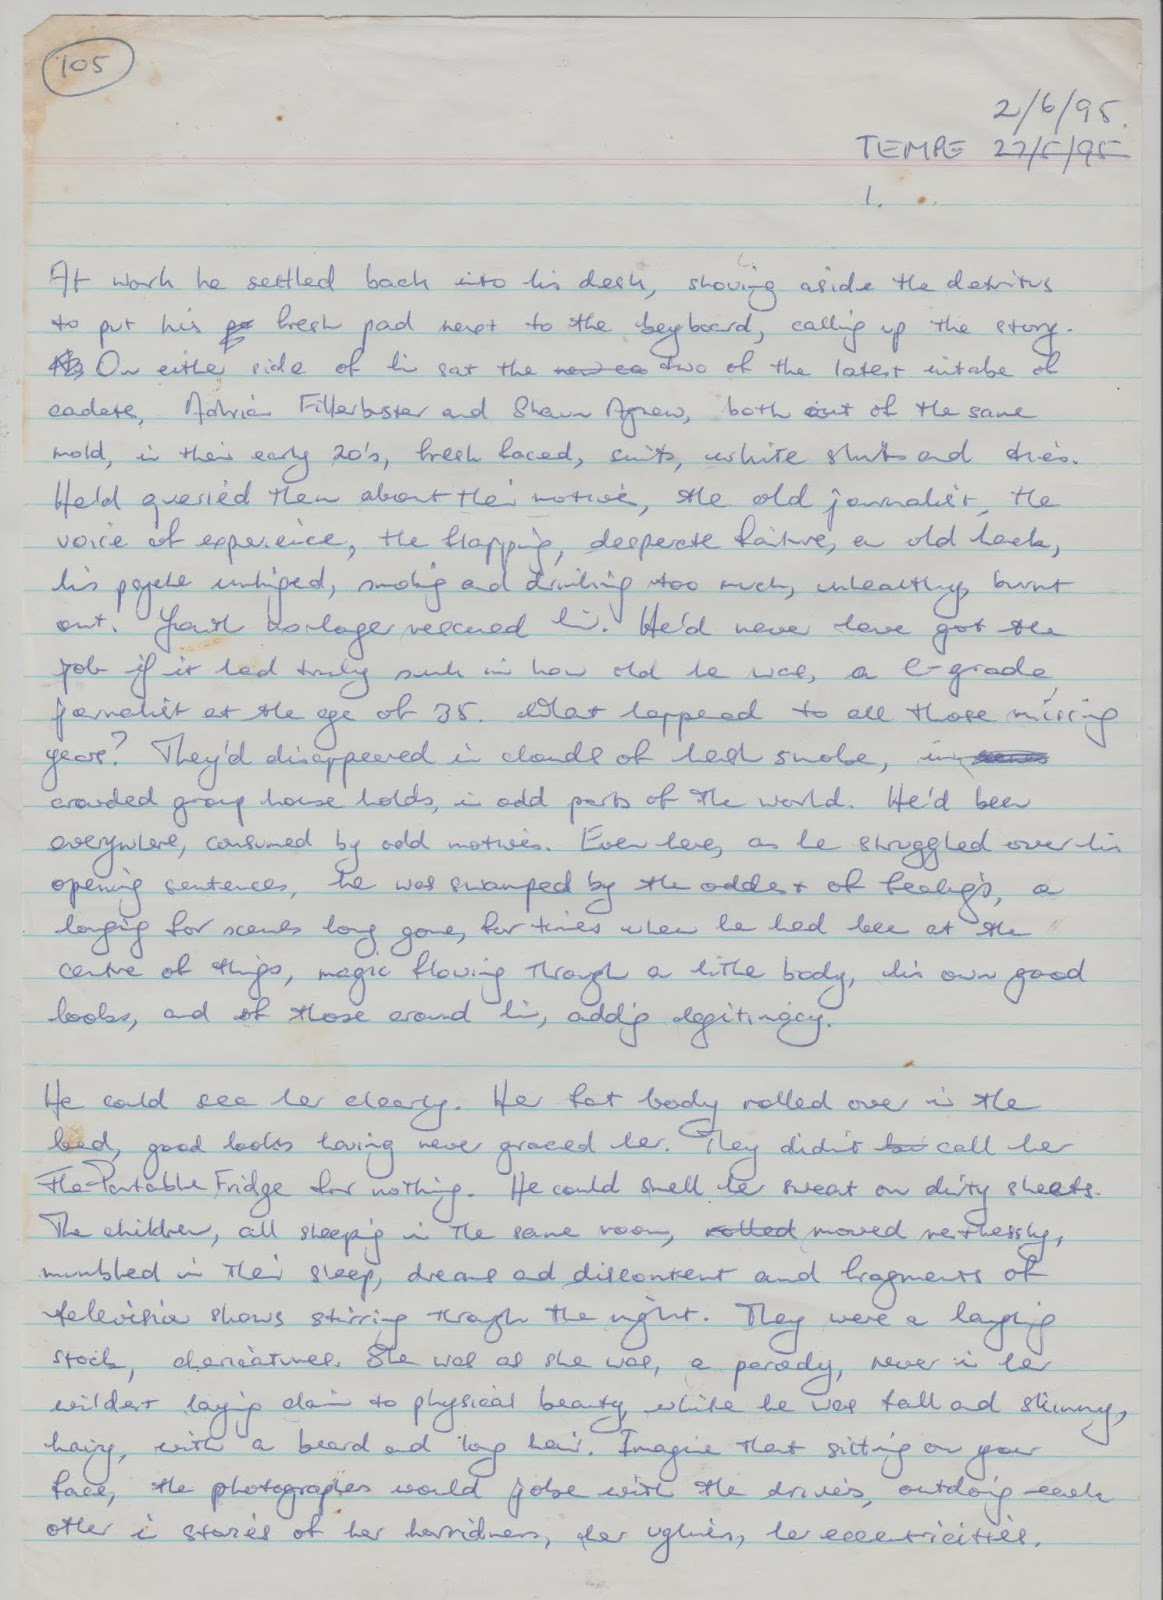 105
2/6/95.
TEMPE 27/5/95
1.
At work he settled back into his desk, shoving aside the detritus
to put his fresh pad next to the keyboard, calling up the story.
On either side of him sat the two of the latest intake of
cadets, Adrian Fillerbuster and Shaun Agnew, both out of the same
mold, in their early 20's, fresh faced, suits, white shirts and ties.
He'd queried them about their motives, the old journalist, the
voice of experience, the flapping, desperate failure, an old hack,
his psyche unhinged, smoking and drinking too much, unhealthy, burnt
out. Youth camouflage rescued him. He'd never have got the
job if it had truly sunk in how old he was, a C-grade
journalist at the age of 35. What happened to all those missing
years? They'd disappeared in clouds of hash smoke, in
crowded group house holds, in odd parts of the world. He'd been
everywhere, consumed by odd motives. Even here, as he struggled over his
opening sentences, he was swamped by the oddest of feelings, a
longing for scenes long gone, for times when he had been at the
centre of things, magic flowing through a little body, his own good
looks, and of those around him, adding legitimacy.
He could see her clearly. Her fat body rolled over in the
bed, good looks having never graced her. They didn't call her
The Portable Fridge for nothing. He could smell her sweat on dirty sheets.
The children, all sleeping in the same room, rolled moved restlessly,
mumbled in their sleep, dreams and discontent and fragments of
television shows stirring through the night. They were a laughing
stock, charicatures. She was as she was, a parody, never in her
wildest laying claim to physical beauty, while he was tall and skinny,
hairy, with a beard and long hair. Imagine that sitting on your
face, the photographers would joke with the drivers, outdoing each
other in stories of her horridness, her ugliness, her eccentricities.